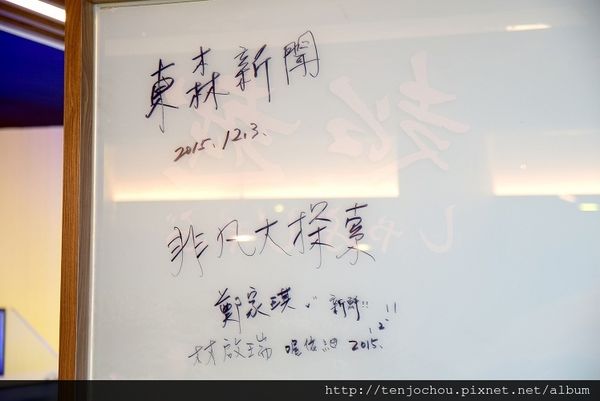 東森新聞
2015.12.3.
非凡大探索
鄭家琪
林啟瑞 2015.12.11
http://tenjochou.pixnet.net/album